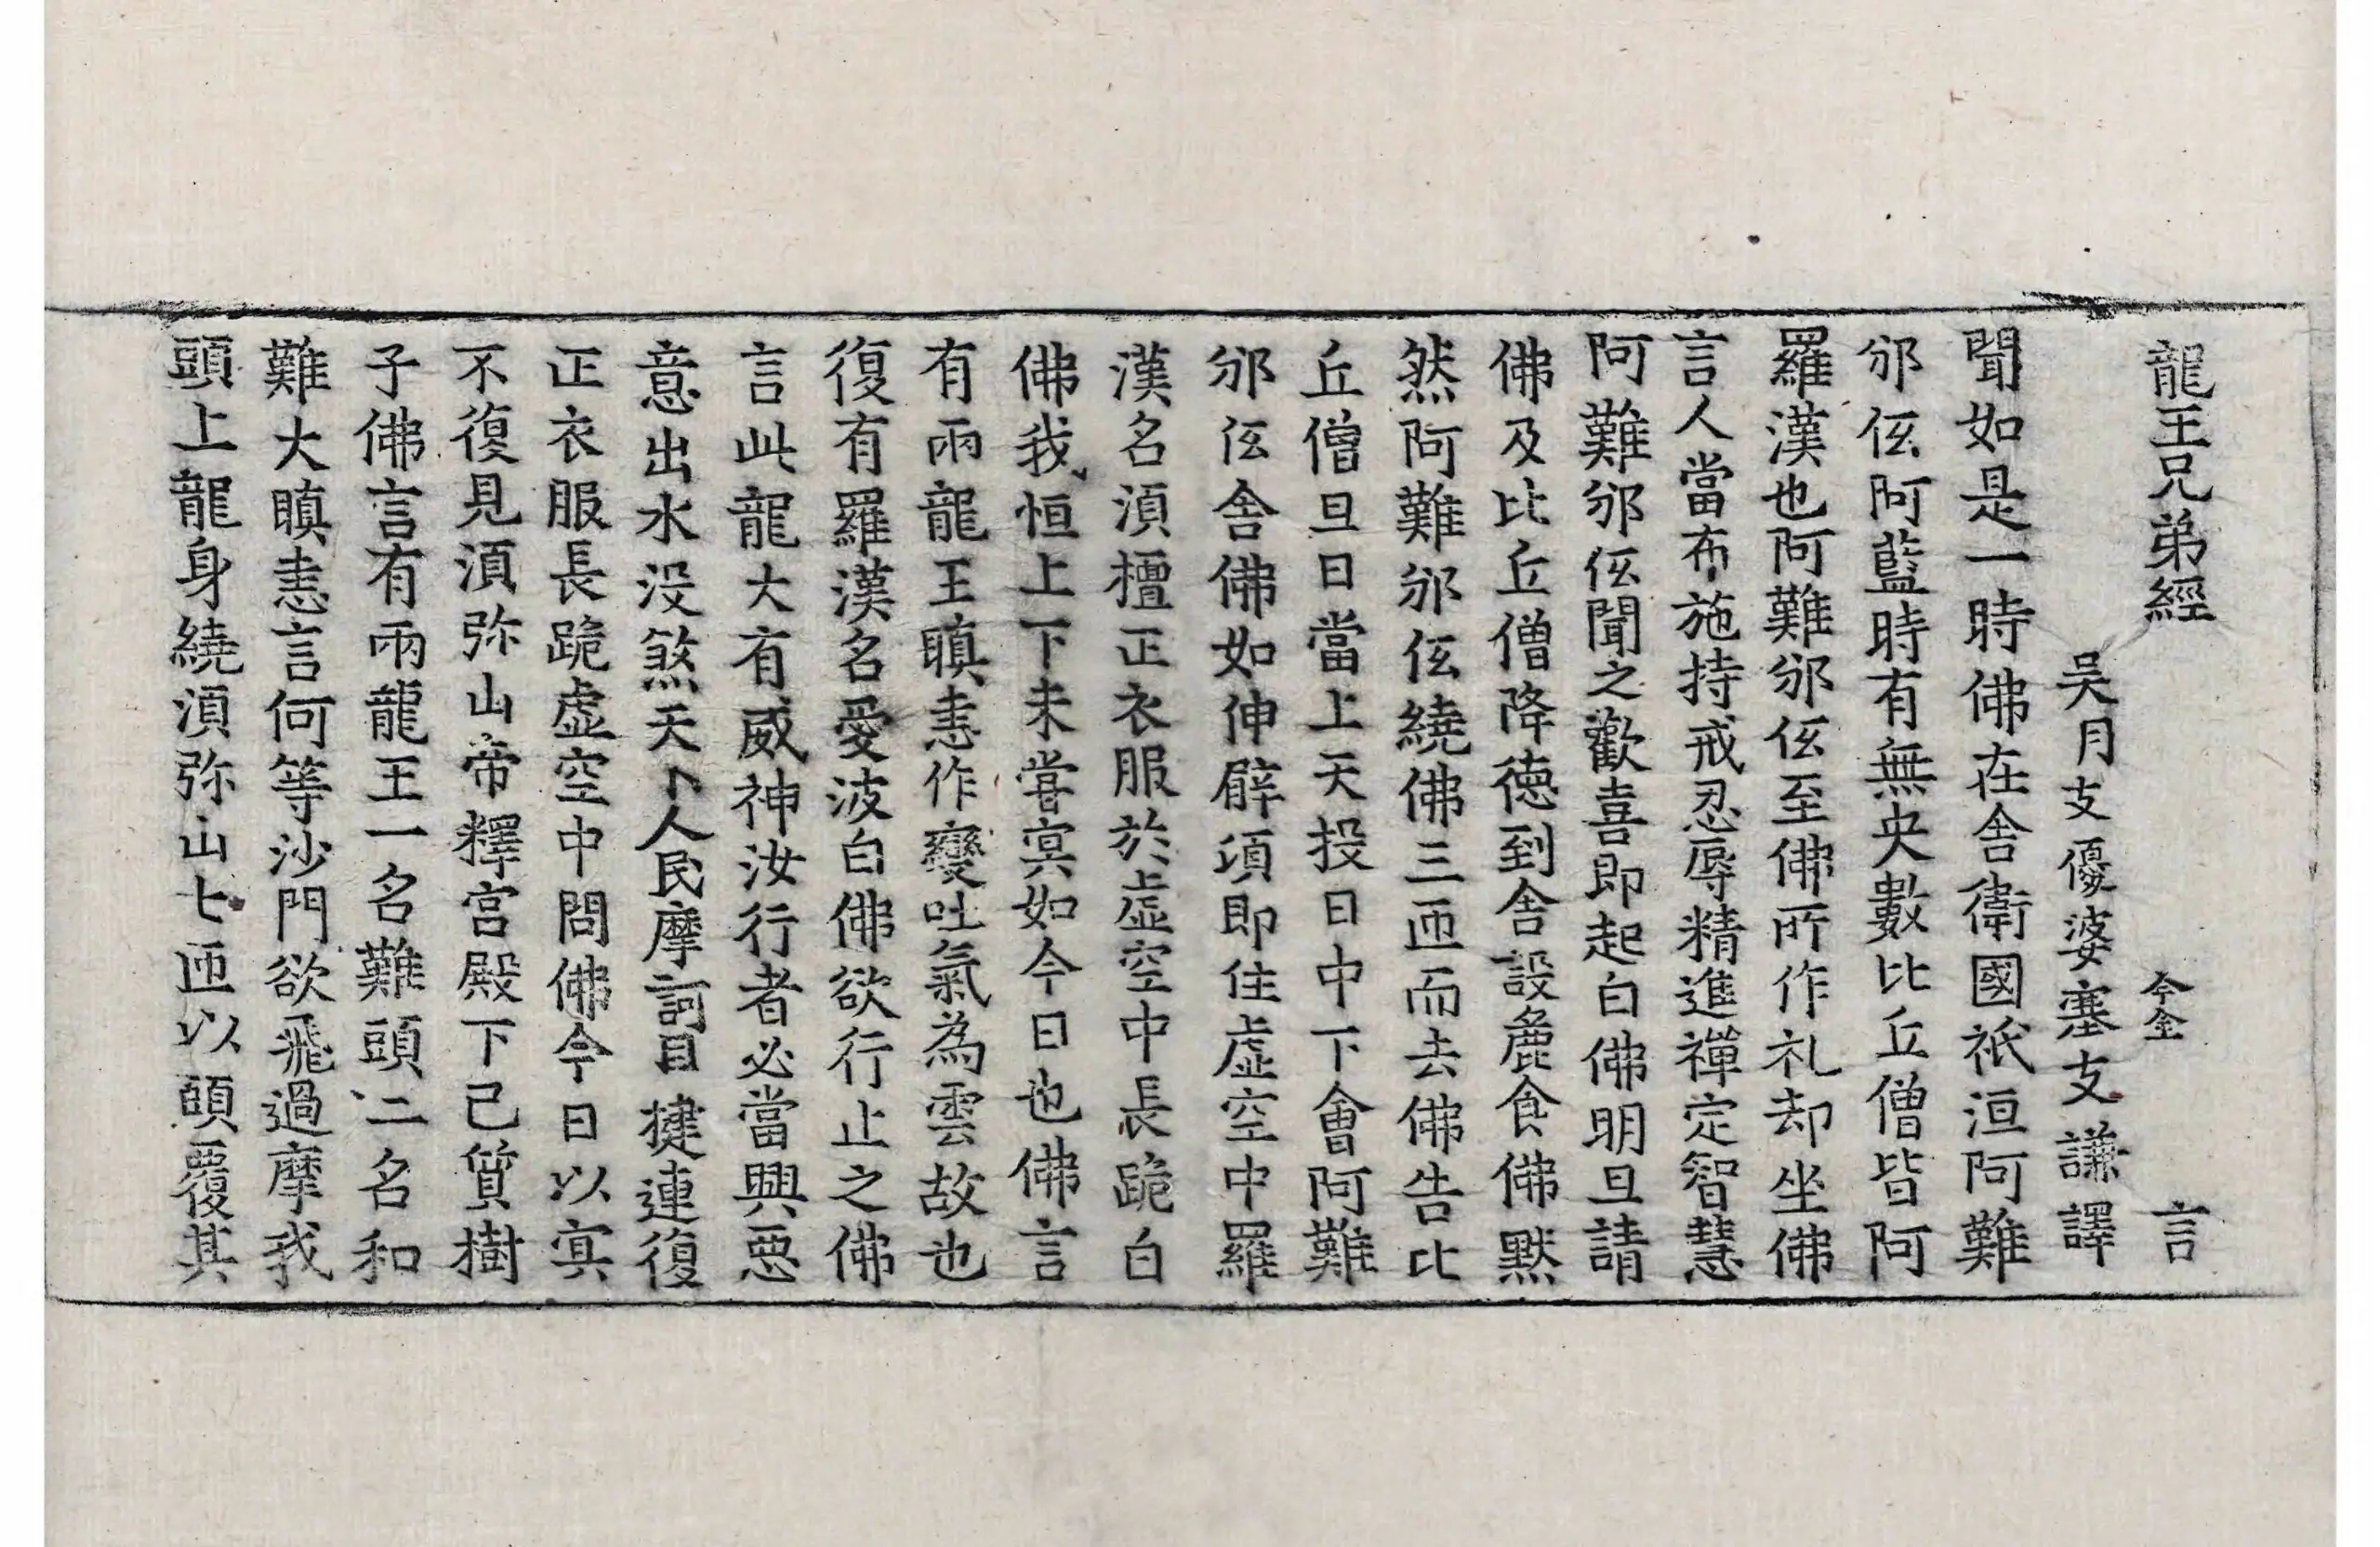 龍王兄弟經 今金 言
吳月支優婆塞支謙譯
聞如是一時佛在舎衛國祇洹阿難
邠伭阿藍時有無央數比丘僧皆阿
羅漢也阿難邠伭至佛所作礼却坐佛
言人當布施持戒忍辱精進禪定智慧
阿難邠伭聞之歡喜即起白佛明旦請
佛及比丘僧降德到舎設麁食佛黙
然阿難邠伭繞佛三匝而去佛告比
丘僧旦日當上天投日中下會阿難
邠伭舎佛如伸臂項即住虛空中羅
漢名湏檀正衣服於虛空中長跪白
佛我恒上下未甞㝠如今日也佛言
有兩龍王瞋恚作變吐氣為雲故也
復有羅漢名愛波白佛欲行止之佛
言此龍大有威神汝行者必當興惡
意出水没煞天下人民摩訶目揵連復
正衣服長跪虛空中問佛今日以㝠
不復見湏弥山帝釋宮殿下己質樹
子佛言有兩龍王一名難頭二名和
難大瞋恚言何等沙門欲飛過摩我
頭上龍身繞湏弥山七匝以頭覆其